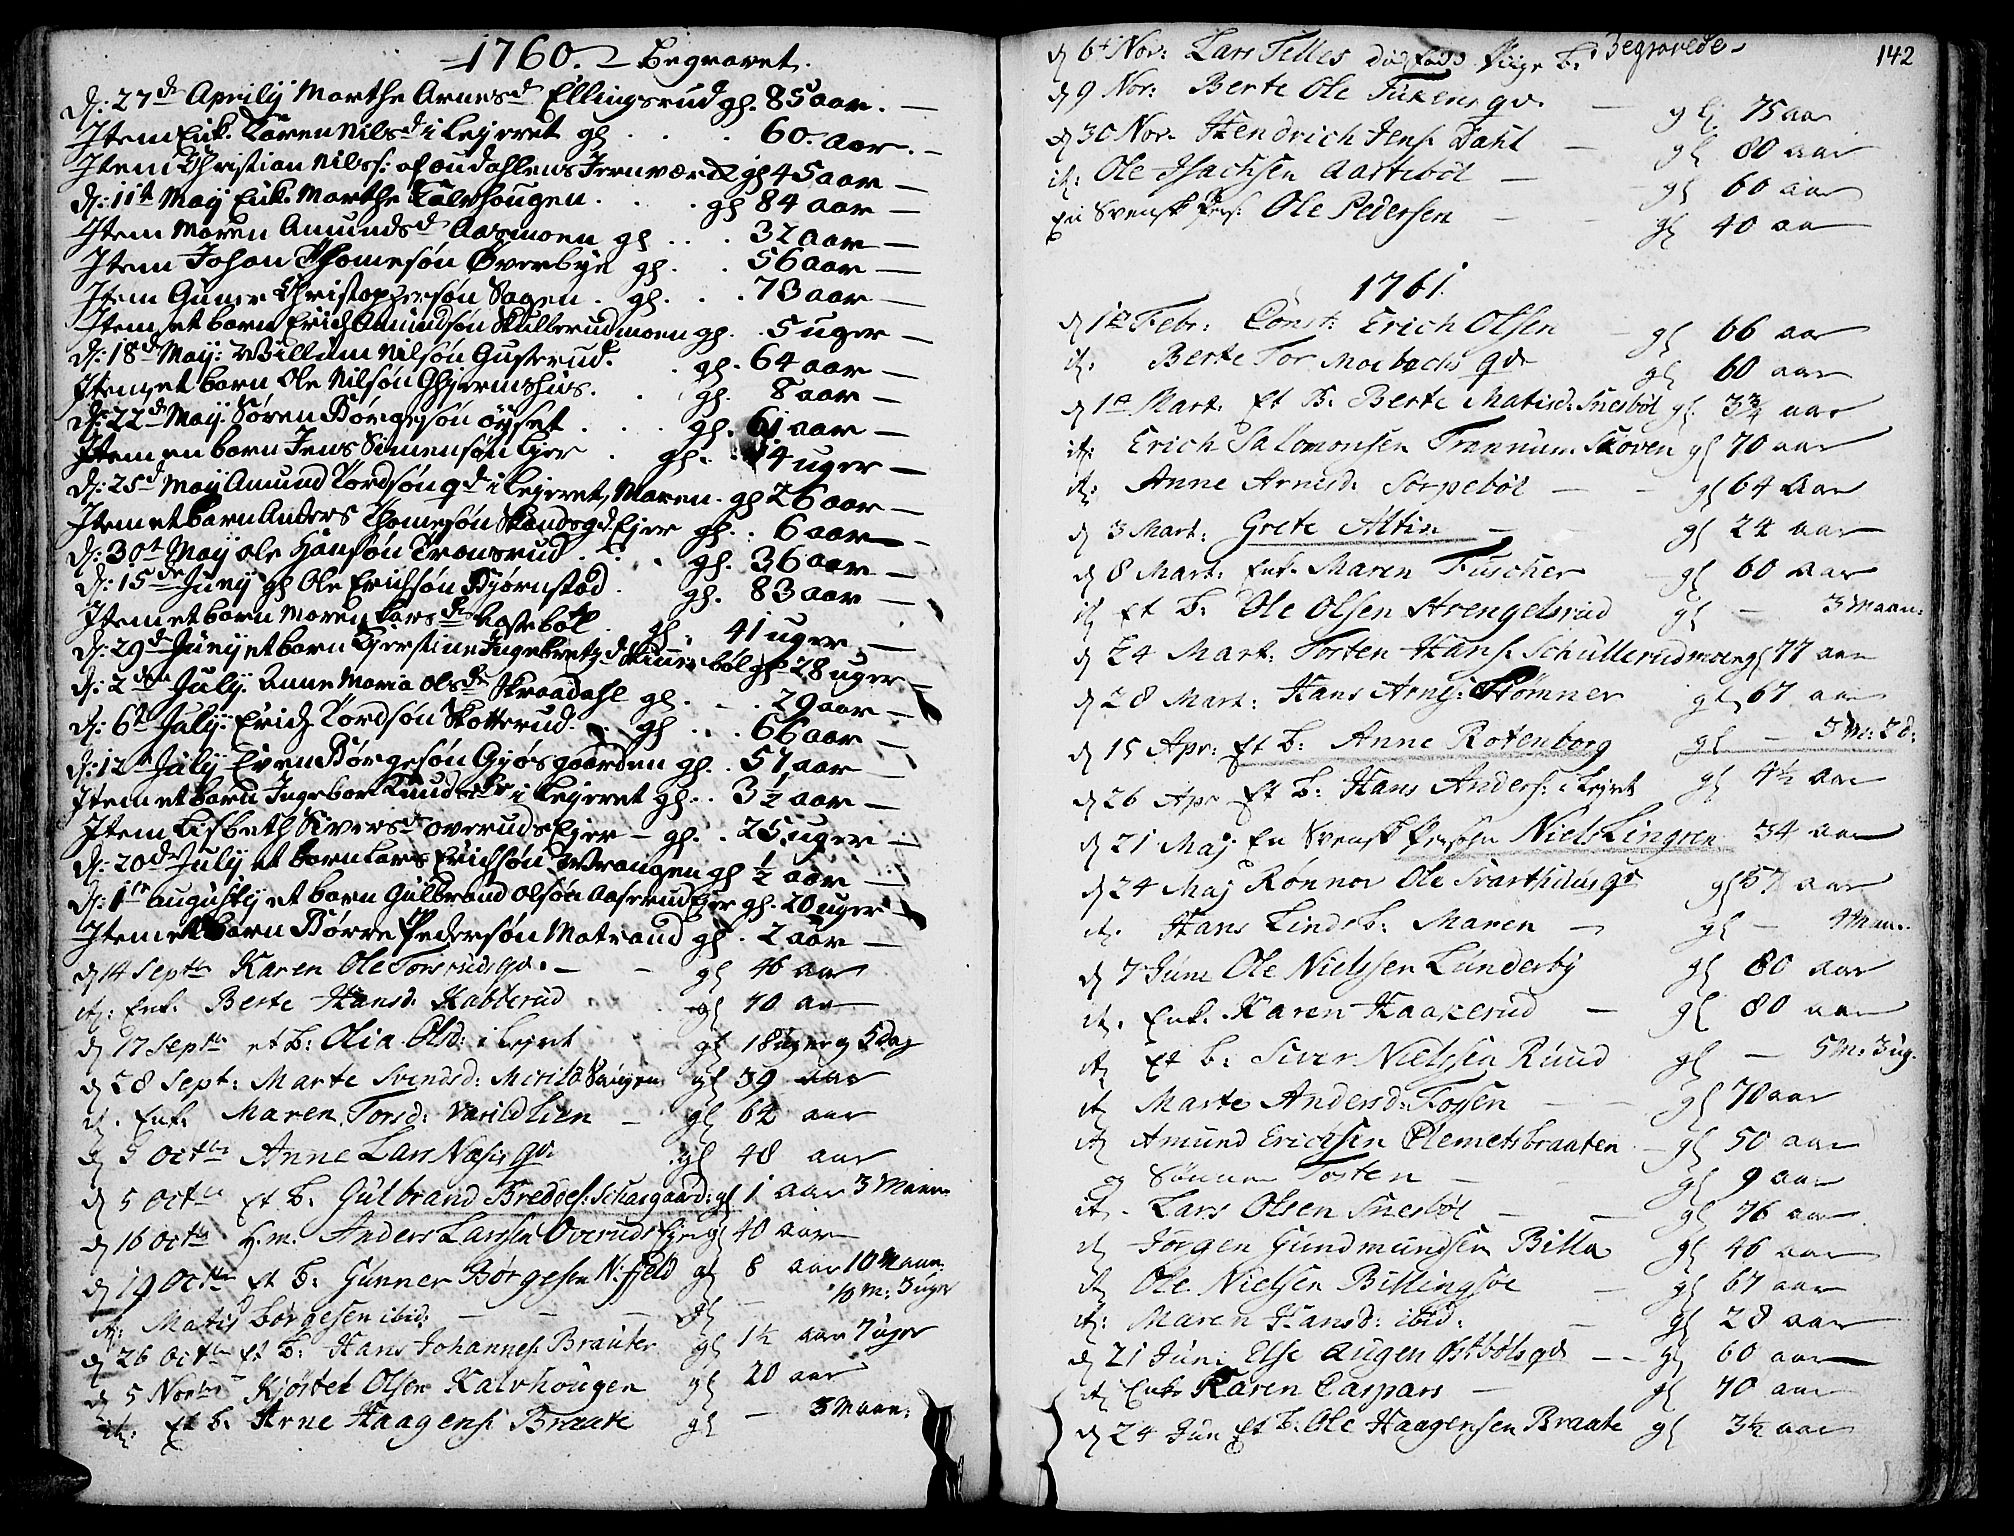 1760. Begravet.
d: 27de Aprilij Marthe Arnesd Ellingsrud gl. 85 aar.
Item Enk. Karen Nilsd i Lejeret gl 60. aar.
Item Christian Nilss: af oudahlens Jernværck gl 45 aar
d: 11te Maij Enk. Marthe Kalvhougen gl 84 aar
Item Maren Amundsd Aasmoen gl 32 aar
Item Johan Thomesøn Overbye gl. 56 aar
Item Guner Christophersøn Sagen gl. 73 aar
Item et barn Erich Amundsøn Skullerudmoen gl. 5 uger
d: 18de Maij: Willum Nilsøn Gusterud gl. 64 aar
Item et barn Ole Nilsøn Ghjermshus gl. 8 aar
d: 22de Maij: Søren Børgesøn øyset gl. 61 aar
Item en barn Jens Simensøn Ejer gl. 14 uger
d: 25de Maij Amund Tordsøn qd i Lejeret, Maren gl 26 aar
Item et barn Anders Thomesøn Skandsgd Ejer gl. 6 aar
d: 30te Maij ole Hansøn Tronsrud gl. 36 aar
d: 15de Junij gl Ole Erichsøn Bjørnstad gl. 83 aar
Item et barn Maren Larsd Aastebøl gl. 41 uger
d: 29de Junij et barn Kjerstine Ingebretzd Skinnesbøl gl 28 uger
d: 2de July. Anne Maria olsd Skraadahl gl. 29 aar
d: 6te July: Erich Tordsøn Skotterud gl 66 aar
d: 12te July Even Børgesøn Gjøsgaarden gl. 57 aar
Item et barn Ingebor Knudsdr i Lejeret gl. 3½ aar
Item Lisbeth Siversd overuds Ejer gl. 25 uger
d: 20de July et barn Lars Erichsøn Wrangen gl ½ aar
d: 1te augustij et barn Gulbrand olsøn Aaserud Ejer gl. 20 uger
Item et barn Børre Pedersøn Matrand gl. 2 aar
d 14 Septbr Karen Ole Torsruds qv. gl 46 aar
it: Enk. Berte Hansd: Kabberud gl 70 aar
d 17 Septbr et b: Olia Olsd: i Lejret gl 18 uger og 5 dag
d 28 Sept: Marte Svendsd: gl 39 aar
it. Enk. Maren Torsd: Varildlien gl 64 aar
d 5 Octbr Anne Lars Næss qv. gl 48 aar
d 5 Octbr et b: Gulbrand Bredes: Schasgaard: gl 1 aar 3 Maan.
d 16 Octbr H.m. Anders Larssen Overuds Ejer gl 40 aar
d 19 Octbr et b: Gunner Børgesen N. fjeld gl 8 aar 10 Maan.
it: Matis Børgesen ibid: gl 10 m: 3 uger
d 26 Octbr et b: Hans Johannes: Braaten gl 1½ aar 7 uger
d 5 Novbr Kjøstel Olsen Kalvhougen gl 20 aar
it: Et b: Arne Haagens: Braate gl 3 Maan:
Begravede 142
d 6t Nov: Lars Felles dødfødd Pige b:
d 9 Nov: Berte Ole Fukens qv. gl 75 aar
d 30 Nov. Hendrich Jens: Dahl gl 80 aar
it: Ole Isachsen Aastebøl gl 60 aar
En Svensk Pers: Ole Pedersen gl 40 aar
1761.
d 1te Febr: Const: Erich Olsen gl 66 aar
it: Berte Tor Morbechs qv gl 60 aar
d 1te Mart. Et B. Berte Matisd: Snesbøl gl. 3¾ aar
it: Erich Salomonsen Trannum Skoven gl 70 aar
it: Anne Arnesd: Sørpebøl gl 64 aar
d 3 Mart: Grete Altin gl 24 aar
d 8 Mart: Enk. Maren Fuscher gl 60 aar
it Et b: Ole Olsen Strengelsrud gl 3 Maan:
d 24 Mart: Tosten Hans: Schullerudmoen gl 77 aar
d 28 Mart: Hans Arnes: Strømner gl 67 aar
d 15 Apr: Et b: Anne Rotenborg gl 3 M: 2 d:
d 26 Apr Et b: Hans Anders: i Lejret gl 4½ aar
d 21 Maj En Svensk Person Niels Lingren 34 aar
d 24 Maj Rønnov Ole Svarthuus qv gl 57 aar
it. Hans Linds b: Maren gl 4 Maan.
d 7 Juni Ole Nielssen Lunderby gl 80 aar
it. Enk. Karen Haakerud gl 80 aar
it Et b: Siver Nielssen Ruud gl 5 M: 3 ug.
it Marte Andersd: Fossen gl 70 aar
it Amund Erichsen Clemetsbraaten gl 50 aar
og Sønnen Tosten gl 9 aar
it. Lars Olsen Snesbøl gl 76 aar
it Jørgen Gundmundsen Billa gl 46 aar
it Ole Nielsen Billingsøe gl 67 aar
it: Maren Hansd: ibid: gl 28 aar
d 21 Jun: Else Augen Østbøls qv gl 60 aar
it Enke Karen Caspars gl 70 aar
d 24 Jun Et b: Ole Haagensen Braate gl 3½ aar